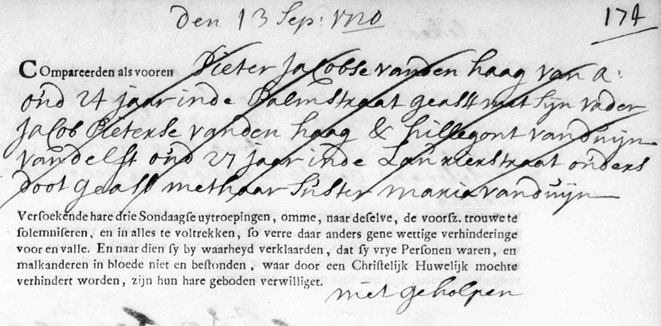 Den 13 Sep: 1720
174
COmpareerden als vooren Pieter Jacobse vanden haag van A:
oud 24 jaar inde Palmstraat geast met sijn vader
Jacob Pieterse vanden haag & hillegont vanduijn
van delft oud 27 jaar inde Laurierstraat ouders
doot geast met haar suster maria vanduijn
Versoekende hare drie Sondaagse uytroepingen, omme, naar deselve, de voorsz. trouwe te
solemniseren, en in alles te voltrekken, so verre daar anders gene wettige verhinderinge
voor en valle. En naar dien sy by waarheyd verklaarden, dat sy vrye Personen waren, en
malkanderen in bloede niet en bestonden, waar door een Christelijk Huwelijk mochte
verhindert worden, zijn hun hare geboden verwilliget.
niet geholpen